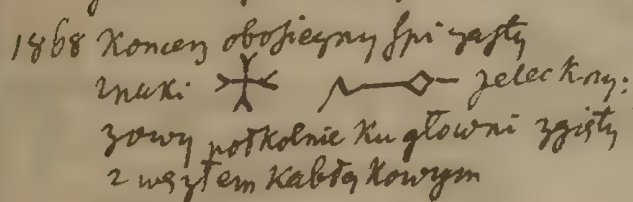 1868 Koncerz obosieczny spiczasty
znaki jelec krzy:
zowy połkolnie ku głowni zgięty
z węzłem Kabłąkowym